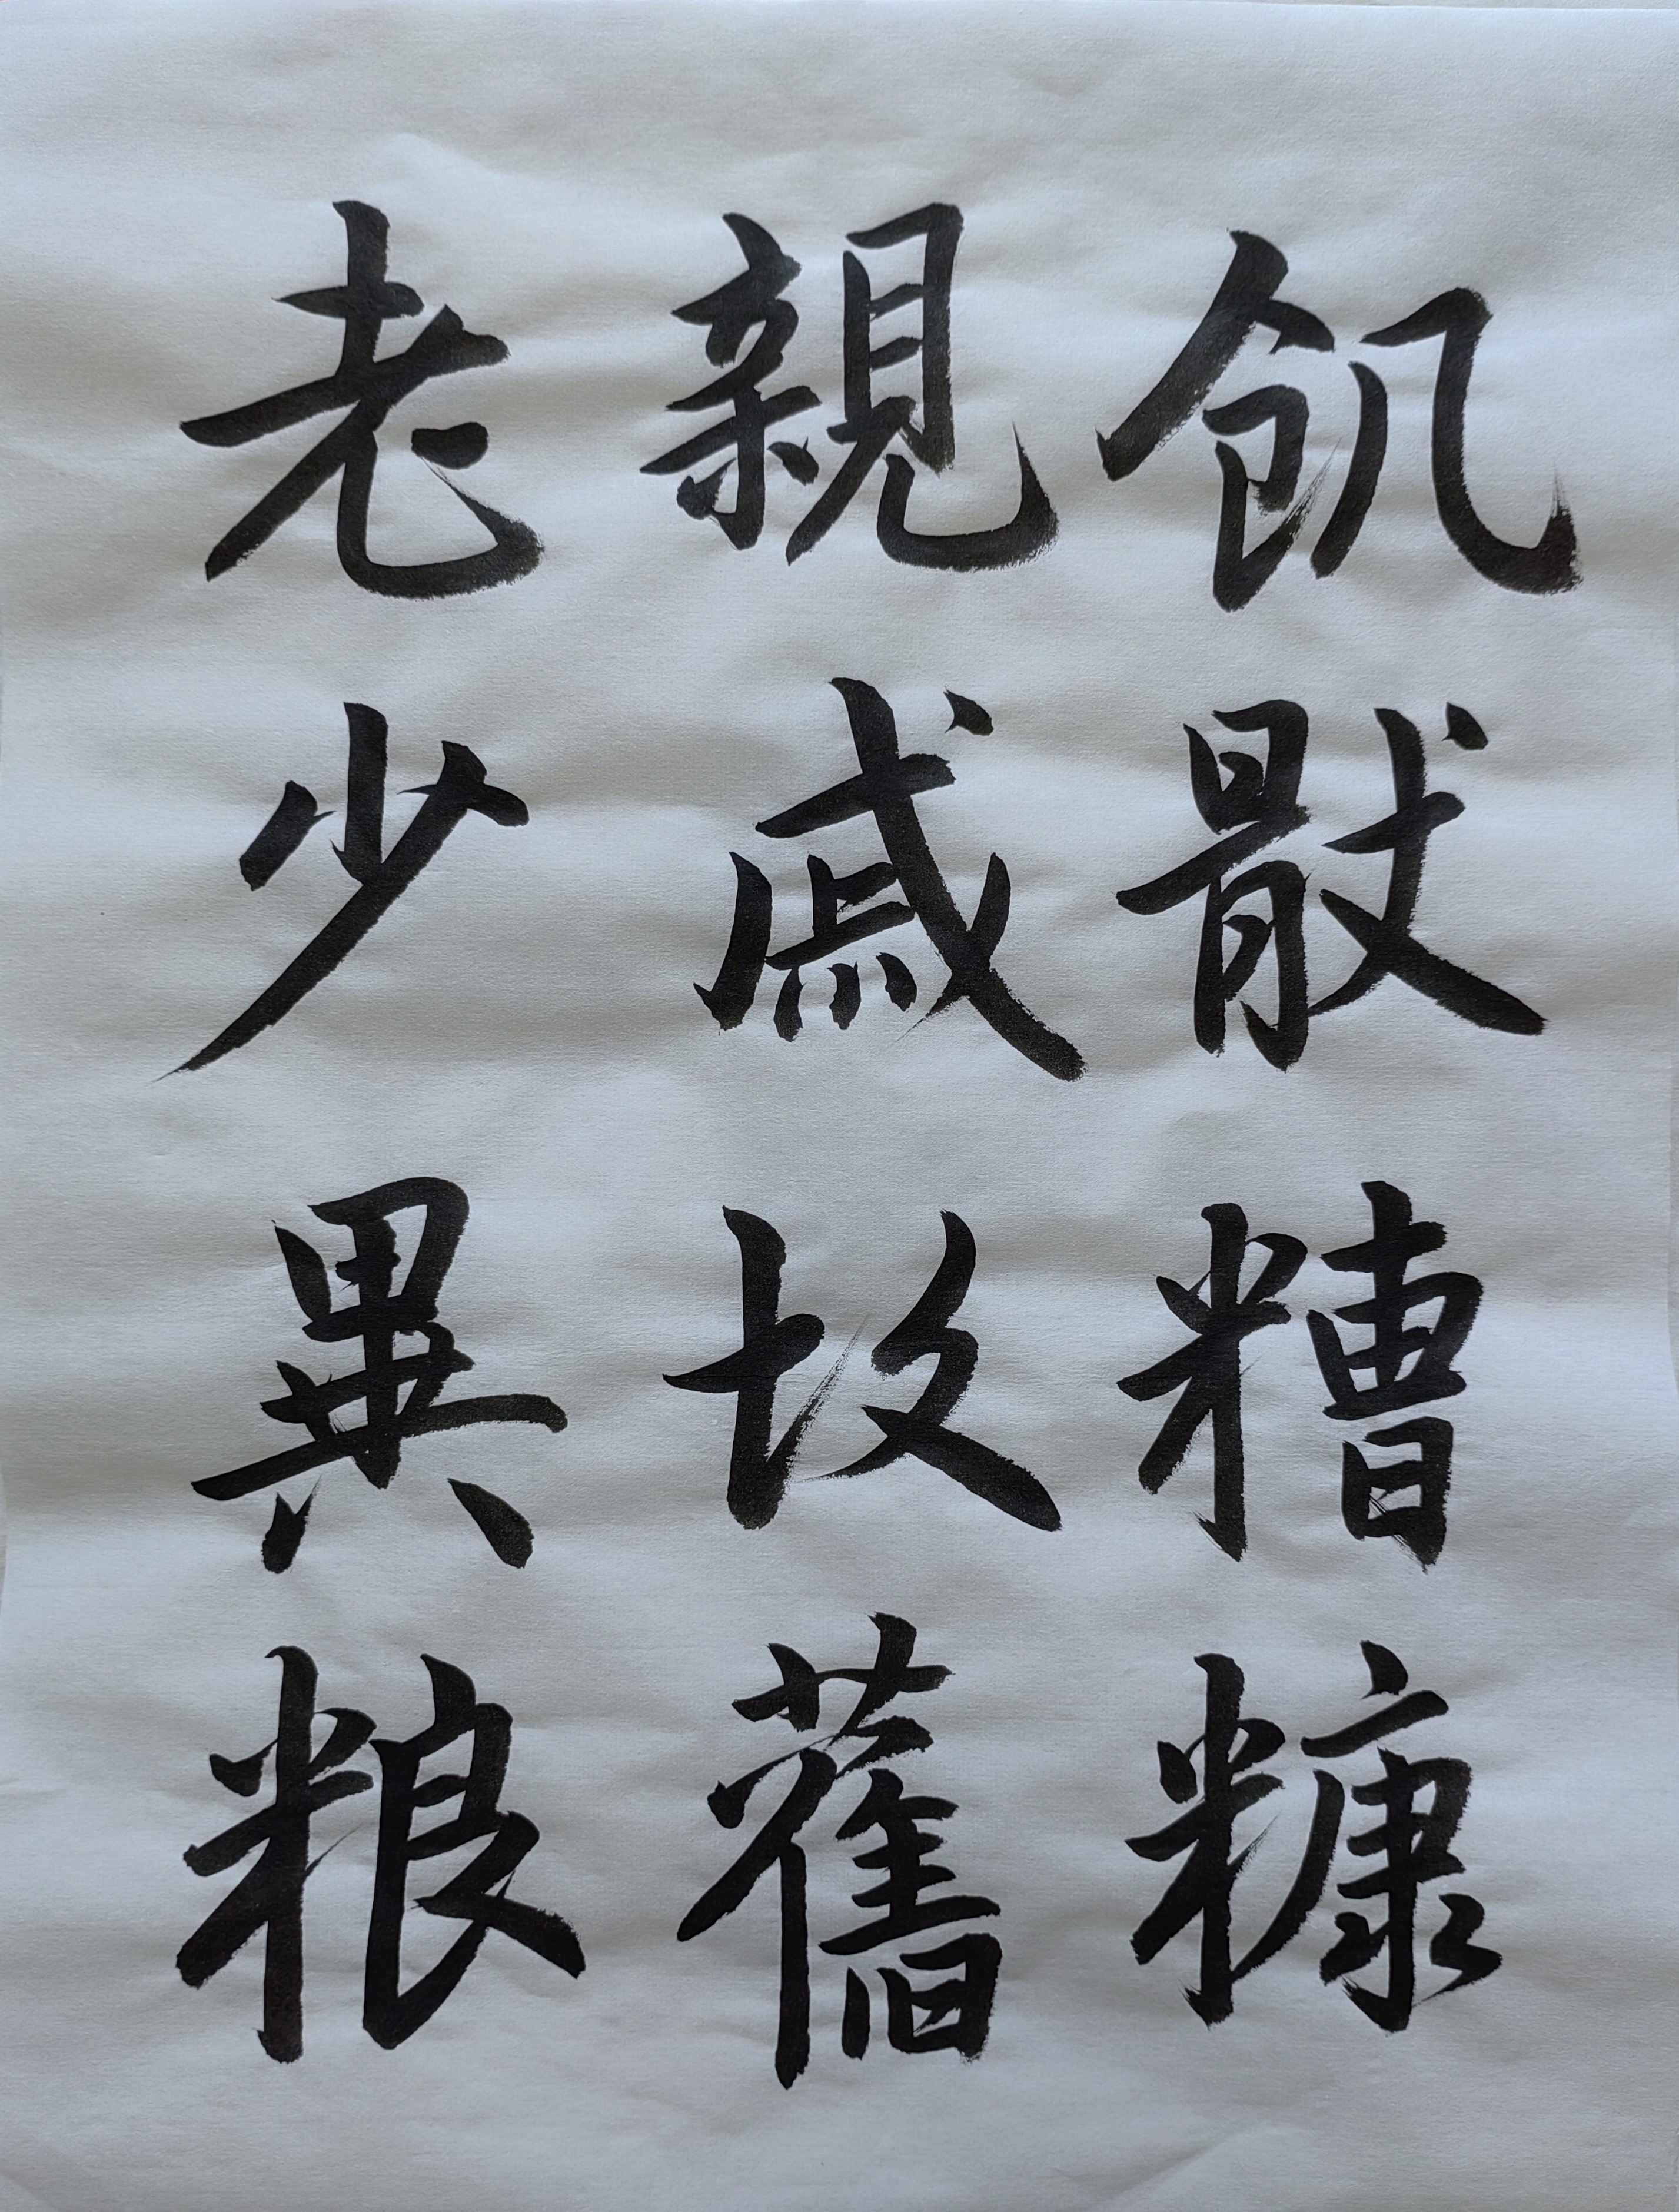 飢猒糟糠
親戚故舊
老少異粮